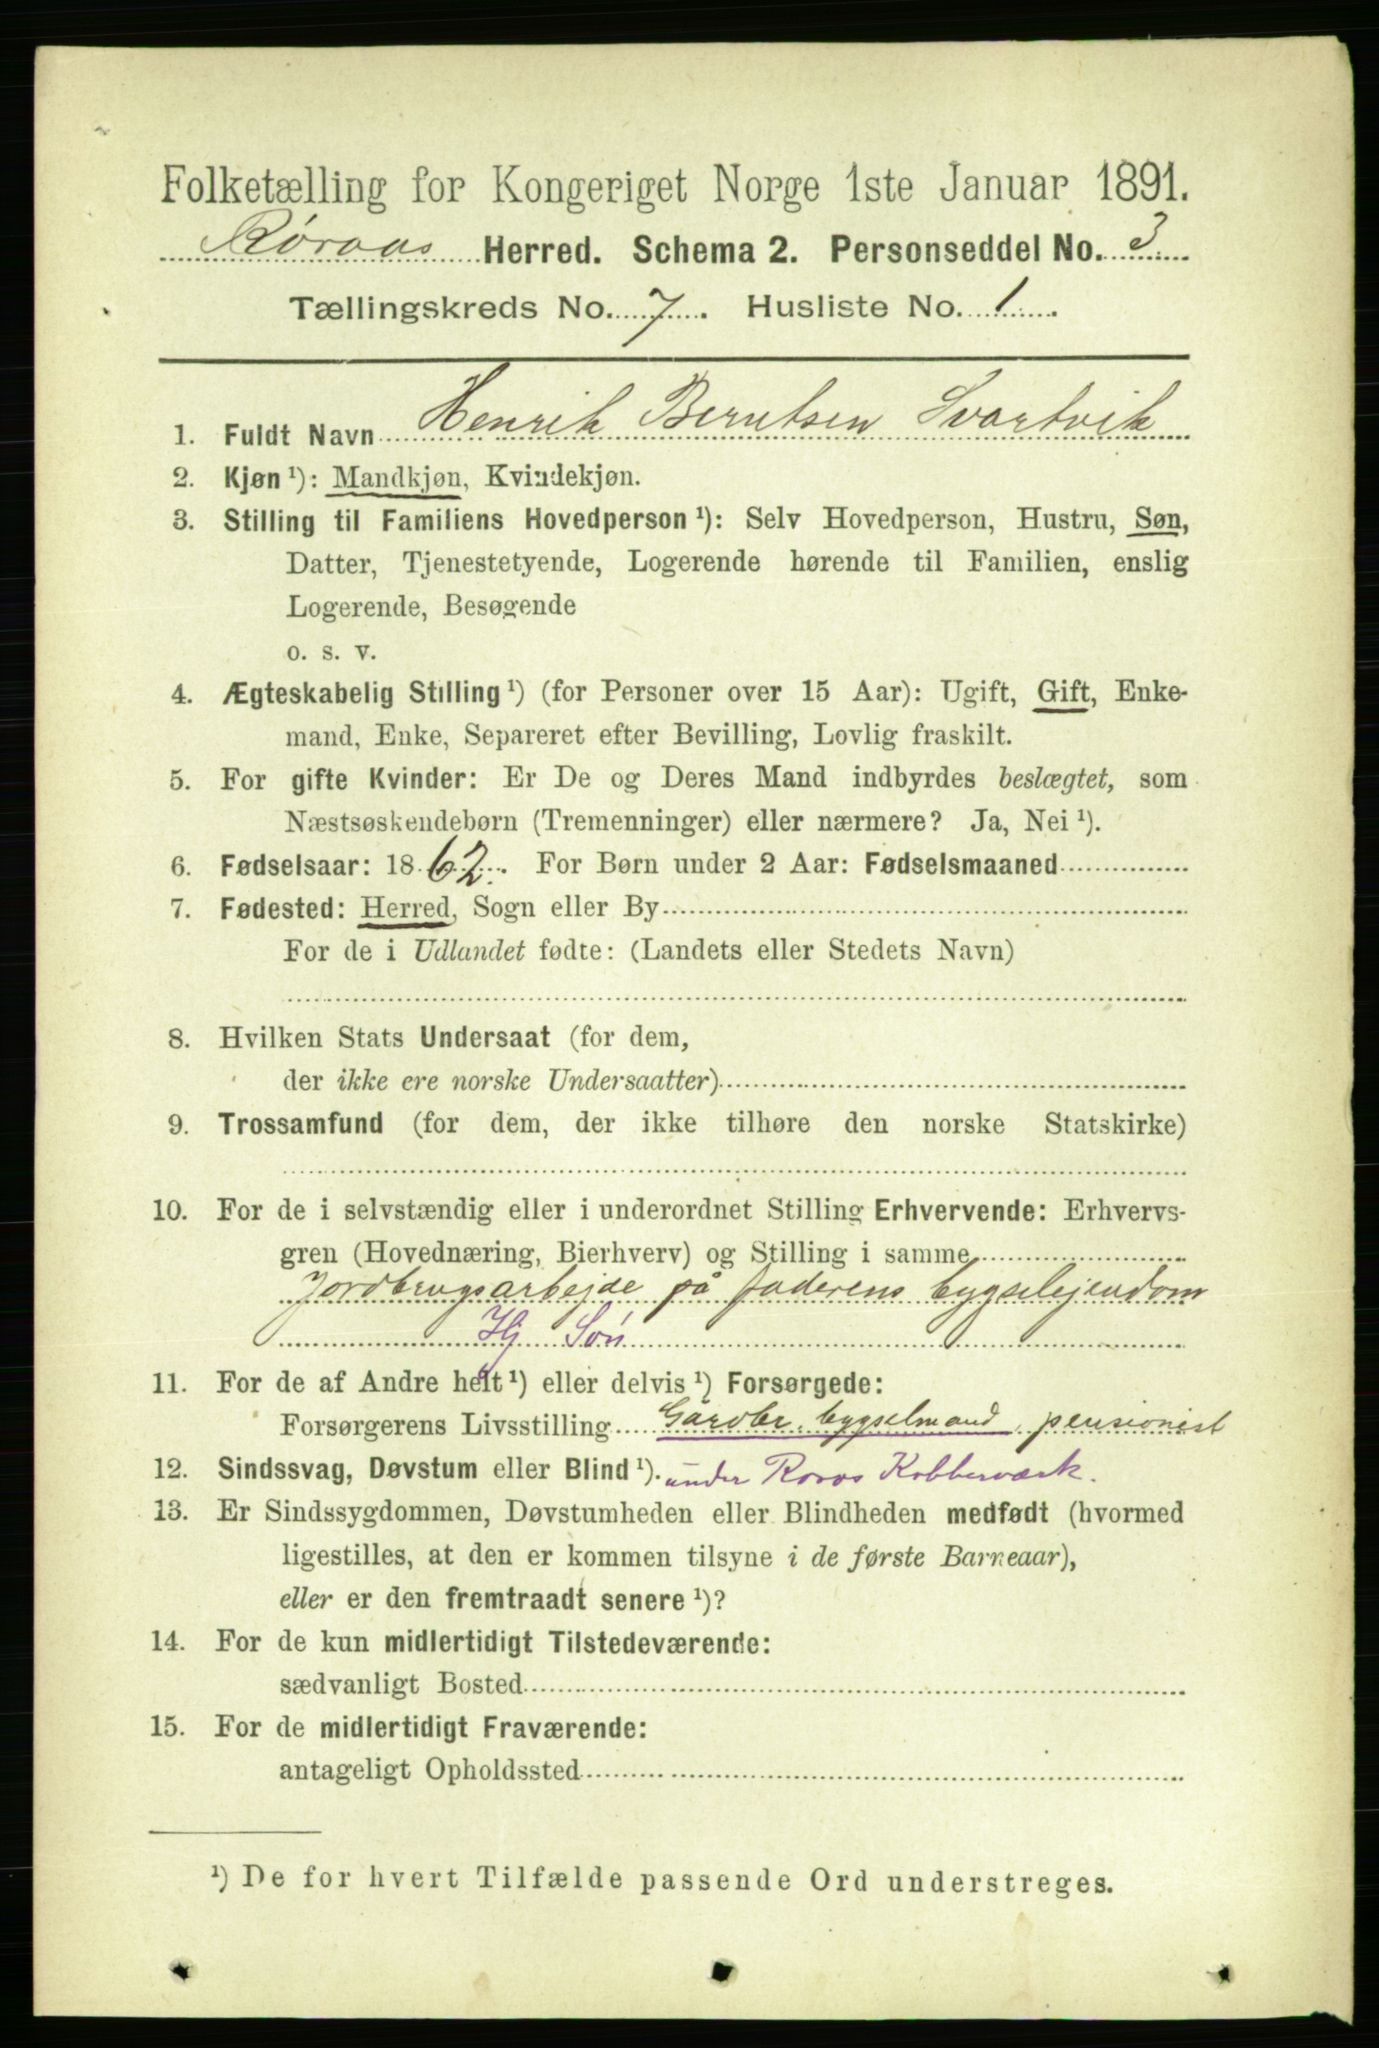 Folketælling for Kongeriget Norge 1ste Januar 1891.
Røraas Herred. Schema 2. Personseddel No. 3
Tællingskreds No. 7. Husliste No. 1
1. Fuldt Navn Henrik Berntsen Svartvik
2. Kjøn ¹): Mandkjøn, Kvindekjøn.
3. Stilling til Familiens Hovedperson ¹): Selv Hovedperson, Hustru, Søn,
Datter, Tjenestetyende, Logerende hørende til Familien, enslig
Logerende, Besøgende
o. s. v.
4. Ægteskabelig Stilling ¹) (for Personer over 15 Aar): Ugift, Gift, Enke-
mand, Enke, Separeret efter Bevilling, Lovlig fraskilt.
5. For gifte Kvinder: Er De og Deres Mand indbyrdes beslægtet, som
Næstsøskendebørn (Tremenninger) eller nærmere? Ja, Nei ¹).
6. Fødselsaar: 1862. For Børn under 2 Aar: Fødselsmaaned
7. Fødested: Herred, Sogn eller By
For de i Udlandet fødte: (Landets eller Stedets Navn)
8. Hvilken Stats Undersaat (for dem,
der ikke ere norske Undersaatter)
9. Trossamfund (for dem, der ikke tilhøre den norske Statskirke)
10. For de i selvstændig eller i underordnet Stilling Erhvervende: Erhvervs-
gren (Hovednæring, Bierhverv) og Stilling i samme
Jordbrugsarbejde på faderens bygselejendom
Hj Søn
11. For de af Andre helt ¹) eller delvis ¹) Forsørgede:
Forsørgerens Livsstilling Gårdbr. bygselmand, pensionist
12. Sindssvag, Døvstum eller Blind ¹). under Roros Kobberværk.
13. Er Sindssygdommen, Døvstumheden eller Blindheden medfødt (hvormed
ligestilles, at den er kommen tilsyne i de første Barneaar),
eller er den fremtraadt senere ¹)?
14. For de kun midlertidigt Tilstedeværende:
sædvanligt Bosted
15. For de midlertidigt Fraværende:
antageligt Opholdssted
¹) De for hvert Tilfælde passende Ord understreges.